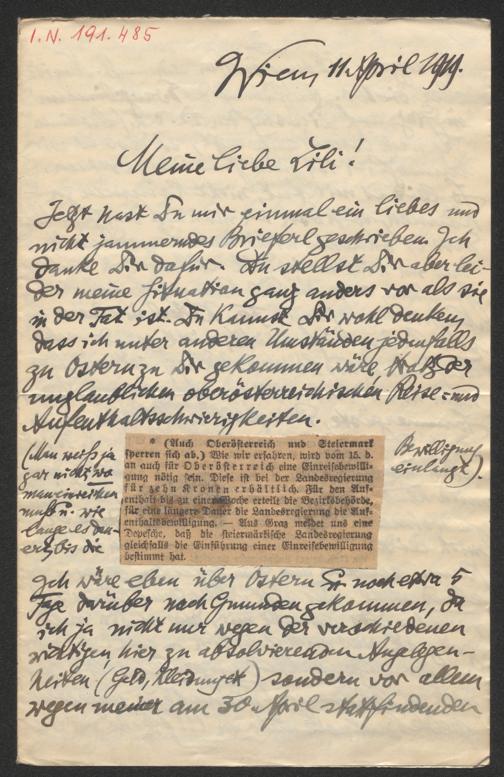 I.N. 191.485
Wien, 11. April 1919.
Meine liebe Lili!
Jetzt hast Du mir einmal ein liebes und
nicht jammerndes Brieferl geschrieben. Ich
danke Dir dafür. Du stellst Dir aber lei-
der meine Situation ganz anders vor als sie
in der Tat ist. Du kannst Dir wohl denken,
dass ich unter anderen Umständen jedenfalls
zu Ostern zu Dir gekommen wäre trotz der
unglaublichen oberösterreichischen Reise- und
Aufenthaltsschwierigkeiten.
(Man weiß ja
gar nicht, wo
man einreichen
muß u. wie
lange es dau-
ert, bis die
* (Auch Oberösterreich und Steiermark
sperren sich ab.) Wie wir erfahren, wird vom 15. d.
an auch für Oberösterreich eine Einreisebewilli-
gung nötig sein. Diese ist bei der Landesregierung
für zehn Kronen erhältlich. Für den Auf-
enthalt bis zu einer Woche erteilt die Bezirksbehörde,
für eine längere Dauer die Landesregierung die Auf-
enthaltsbewilligung. — Aus Graz meldet uns eine
Depesche, daß die steiermärkische Landesregierung
gleichfalls die Einführung einer Einreisebewilligung
bestimmt hat.
Bewilligung
einlangt).
Ich wäre eben über Ostern u. noch etwa 5
Tage darüber nach Gmunden gekommen, da
ich ja nicht nur wegen der verschiedenen
wichtigen hier zu absolvierenden Angelegen-
heiten (Geld, Kleidung etc) sondern vor allem
wegen meiner am 30. April stattfindenden